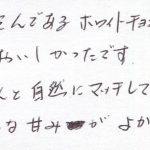 んである ホワイトチョ
おいしかったです.
んと自然にマッチして
な甘みが よか